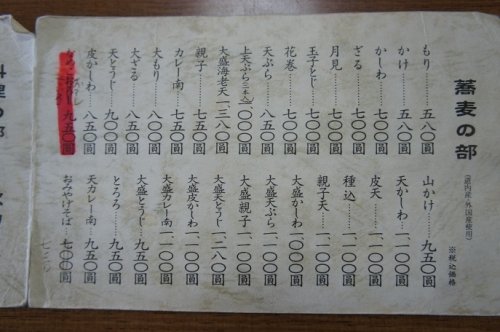 蕎麦の部
(道内産・外国産使用)
※税込価格
もり……五八〇圓
かけ……五八〇圓
かしわ……七五〇圓
ざる……七五〇圓
月見……七五〇圓
玉子とじ……七五〇圓
花巻……七五〇圓
天ぷら……九五〇圓
上天ぷら(二本入)…一、二〇〇圓
大盛海老天…一、三八〇圓
親子……七五〇圓
カレー南……七五〇圓
大もり……八〇〇圓
大ざる……九五〇圓
天とうじ……九〇〇圓
皮かしわ……八五〇圓
九五〇圓
山かけ……九五〇圓
天かしわ…一、一〇〇圓
皮天……一、一〇〇圓
種込……一、一〇〇圓
親子天…一、一〇〇圓
大盛かしわ
大盛天ぷら
大盛親子
大盛天とうじ…一、二八〇圓
大盛皮かしわ
大盛カレー南
大盛とうじ…九五〇圓
とろろ……九五〇圓
天カレー南…九五〇圓
おみやげそば…七〇〇圓